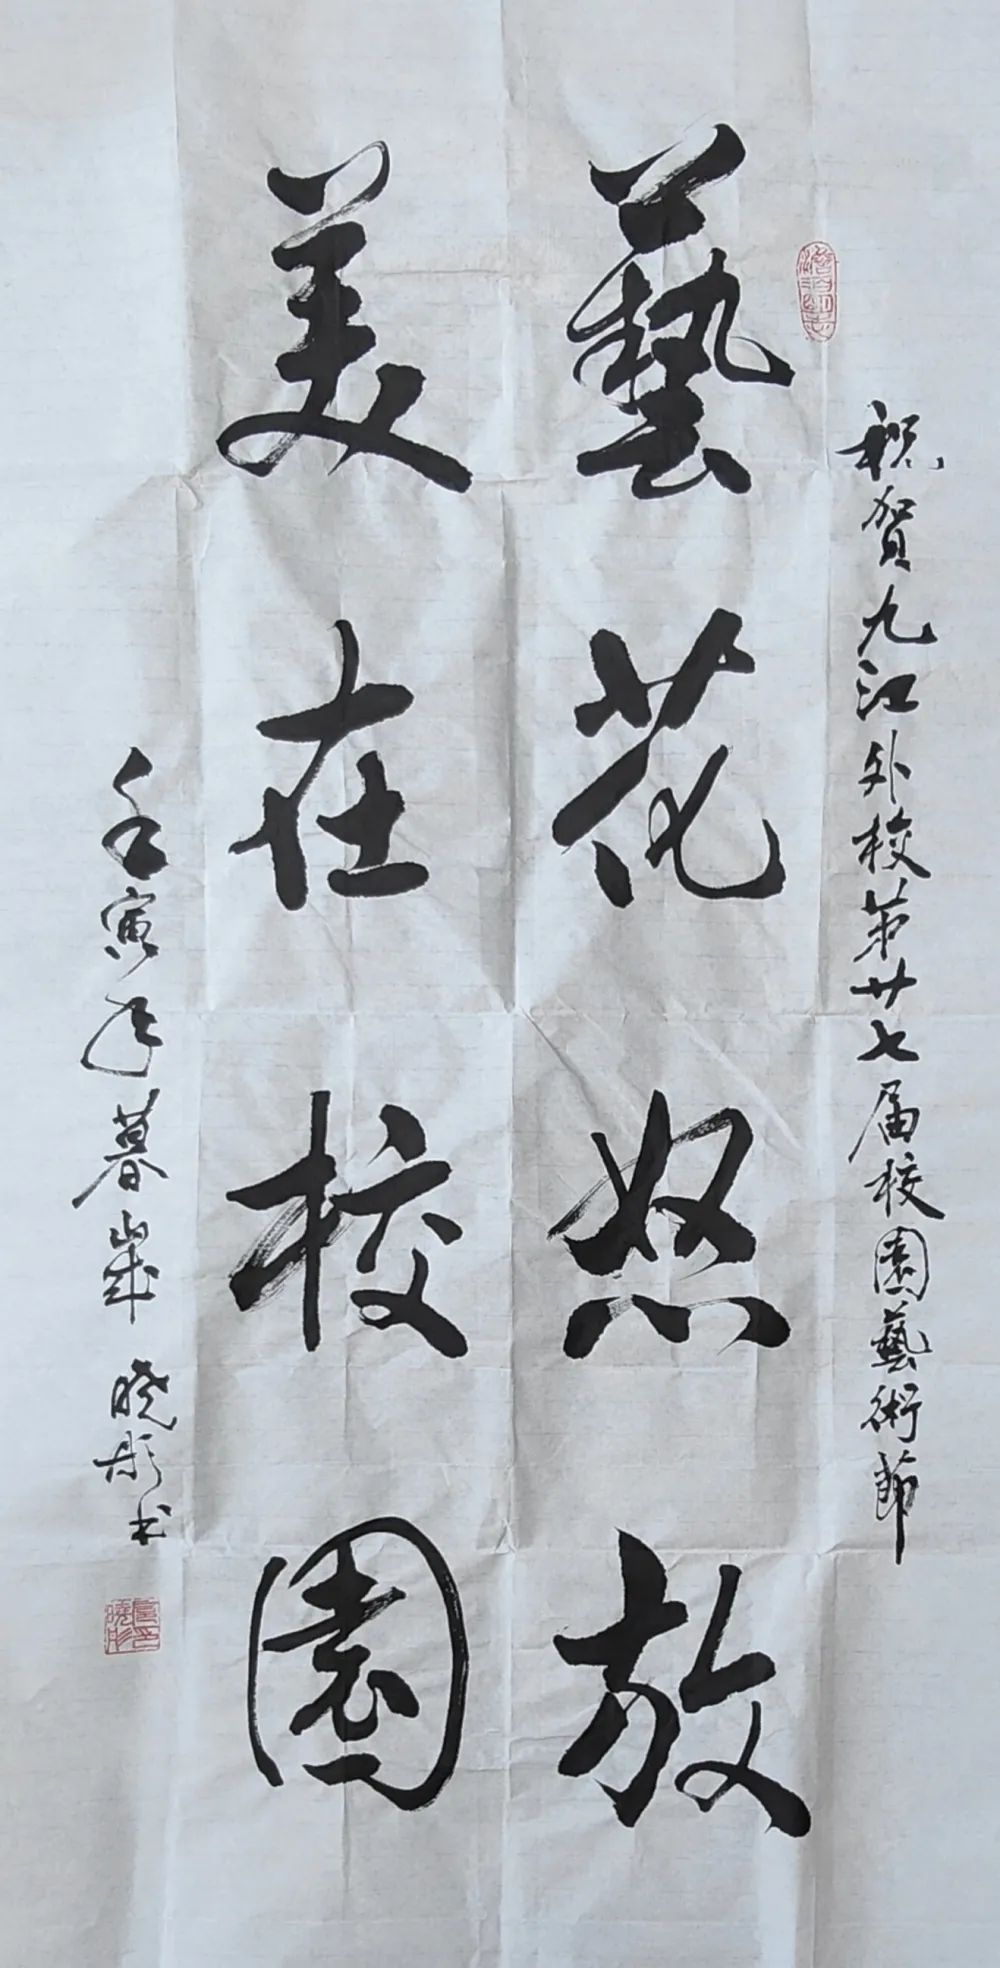 祝贺九江外校第廿七届校园藝術節
藝花怒放
美在校園
壬寅年暮歲 晓彤书